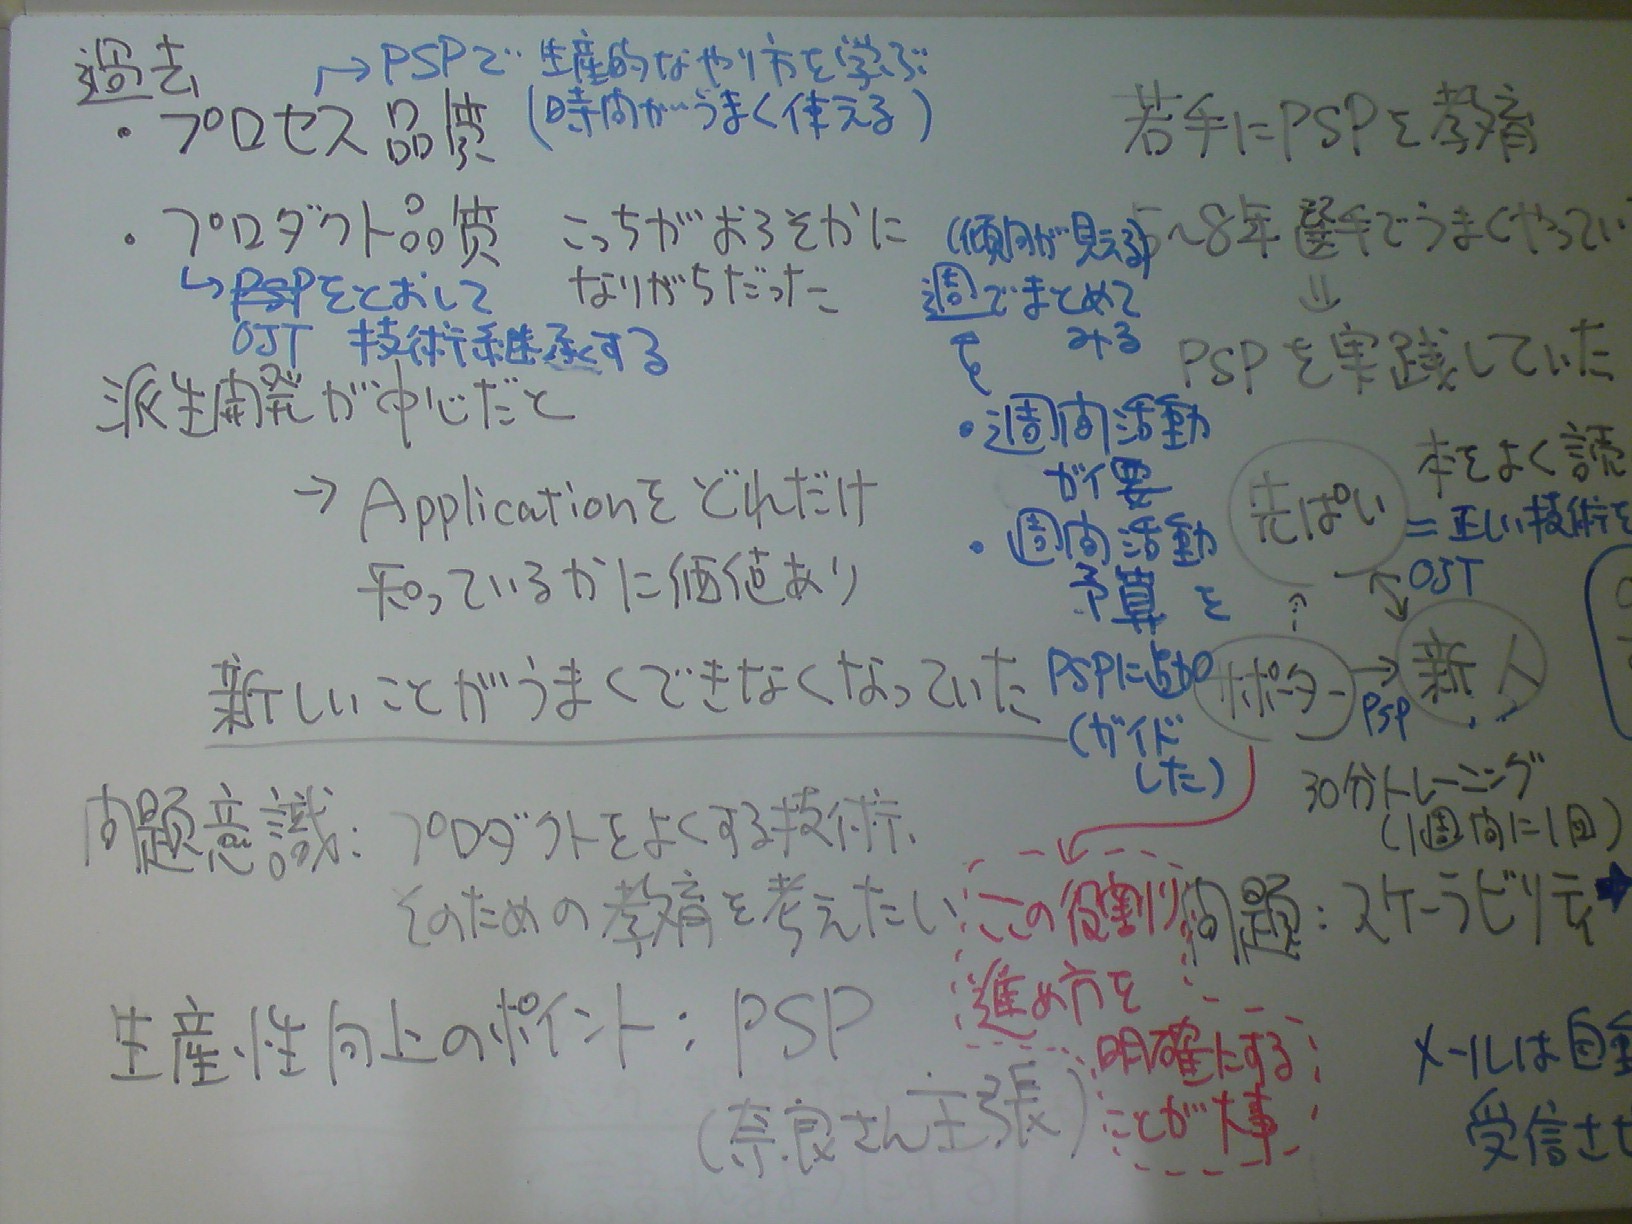 過去
→PSPで 生産的なやり方を学ぶ
(時間がうまく使える)
・プロセス品質
・プロダクト品質 こっちがおろそかに
なりがちだった
↳PSPをとおして
OJT 技術継承する
派生開発が中心だと
→ Applicationをどれだけ
知っているかに価値あり
新しいことがうまくできなくなっていた
問題意識: プロダクトをよくする技術、
そのための教育を考えたい
生産性向上のポイント: PSP
(奈良さん主張)
(傾向が見える)
週でまとめて
みる
・週間活動
が要
・週間活動
予算を
PSPに
(ガイド
した)
若手にPSPを教育
5~8年選手でうまくやってい
⇓
PSPを実践していた
先ぱい
本をよく読
=正しい技術を
OJT
サポーター
→
PSP
新人
30分トレーニング
(1週間に1回)
この役割
進め方を
明確にする
ことが大事
問題:スケーラビリティ
メールは自動
受信させ